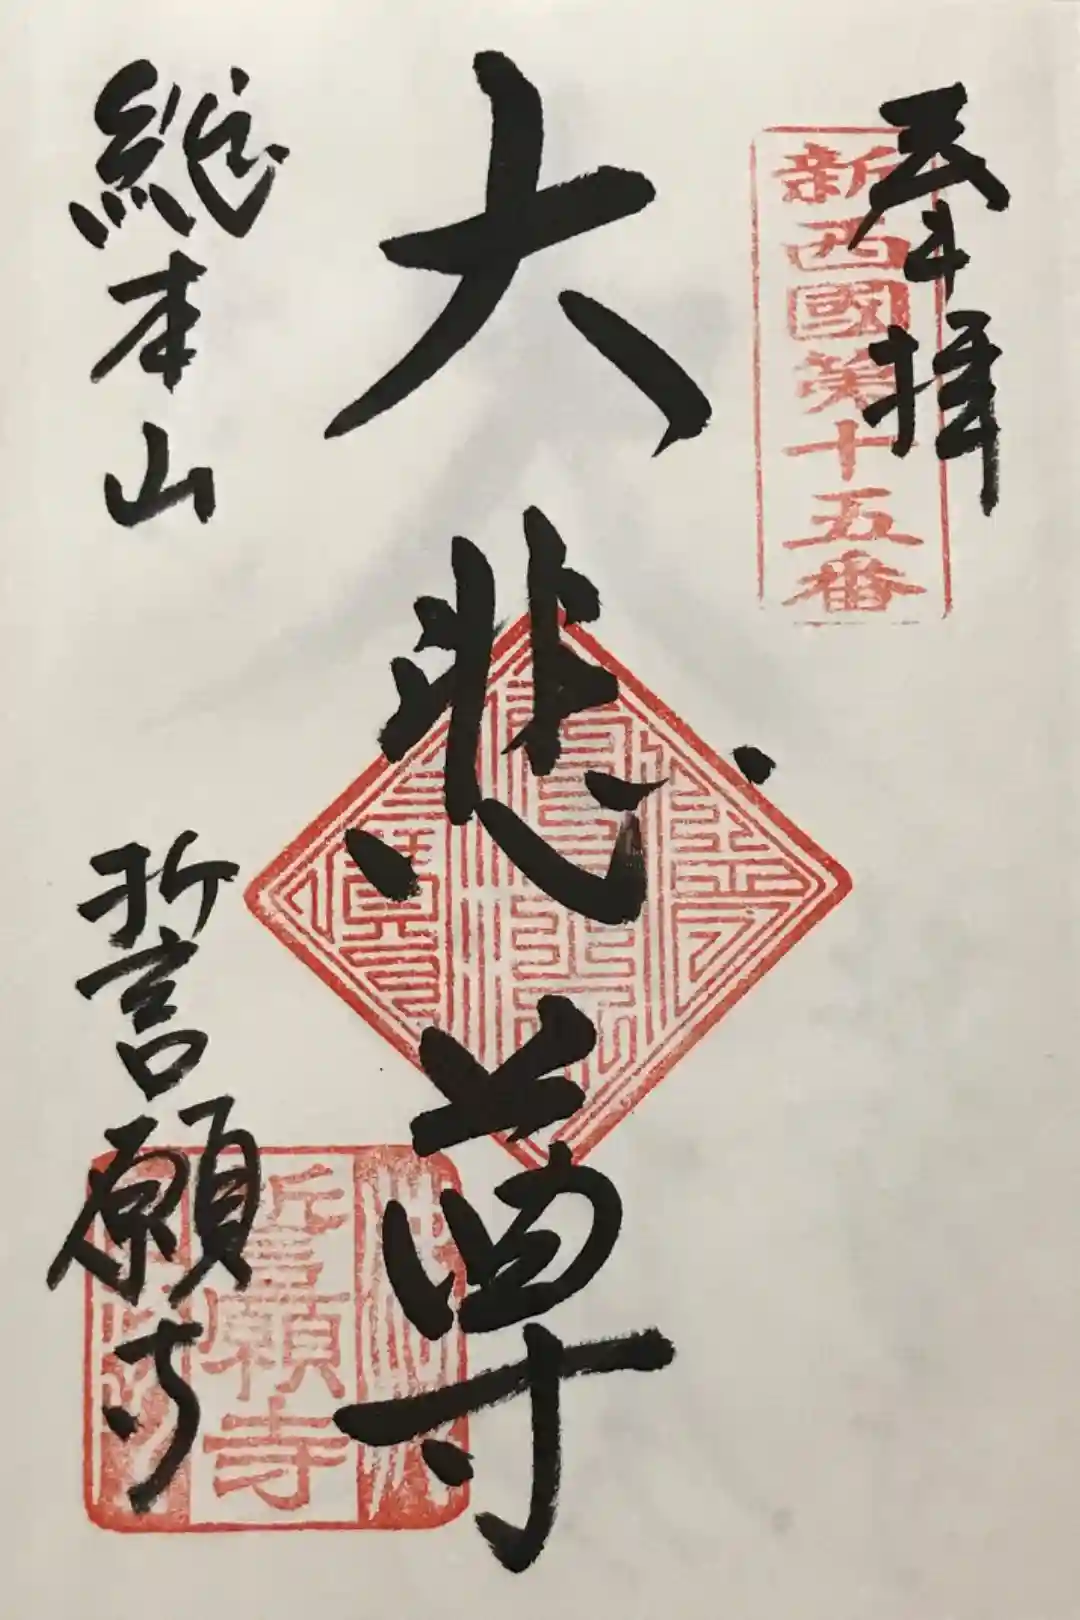 奉拝
新西國第十五番
大悲尊
総本山
誓願寺
誓願寺